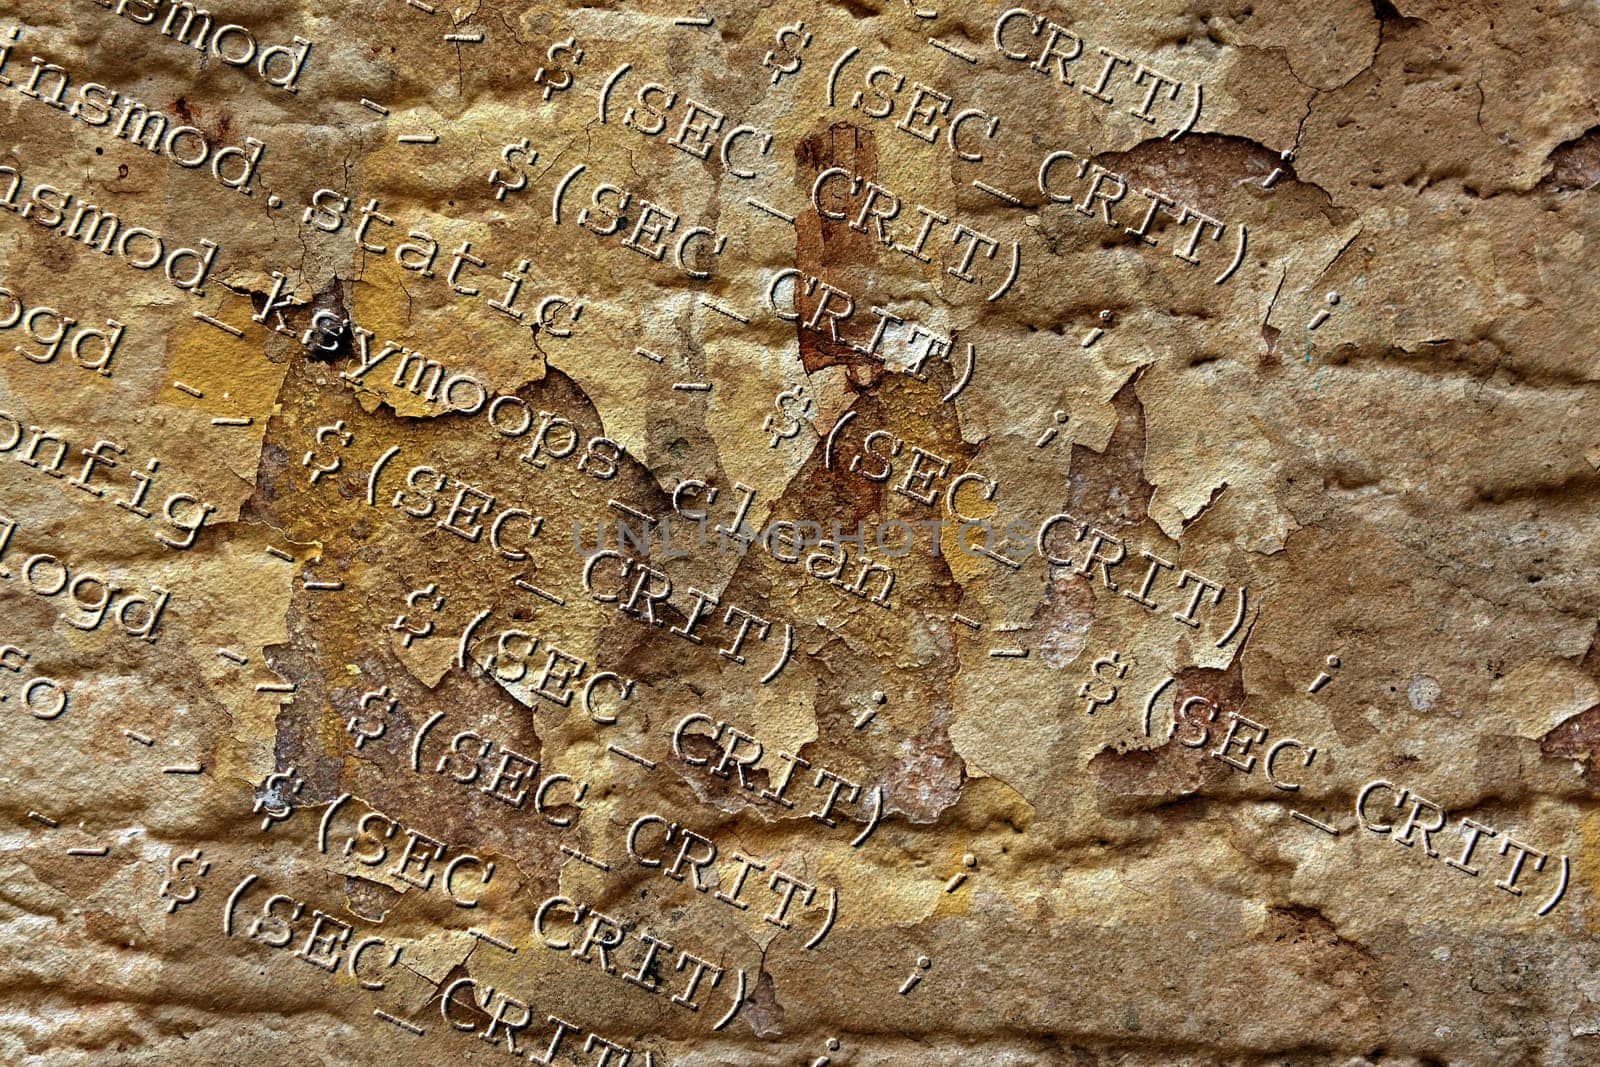 _CRIT) ;
$(SEC_CRIT) ;
- $(SEC_CRIT) ;
nsmod -- $(SEC_CRIT) ;
insmod.static -- $(SEC_CRIT) ;
nsmod_ksymoops_clean -- $(SEC_CRIT)
ogd -- $(SEC_CRIT) ;
onfig -- $(SEC_CRIT) ;
logd -- $(SEC_CRIT) ;
fo -- $(SEC_CRIT) ;
-- $(SEC_CRIT)
UNLIMPHOTOS